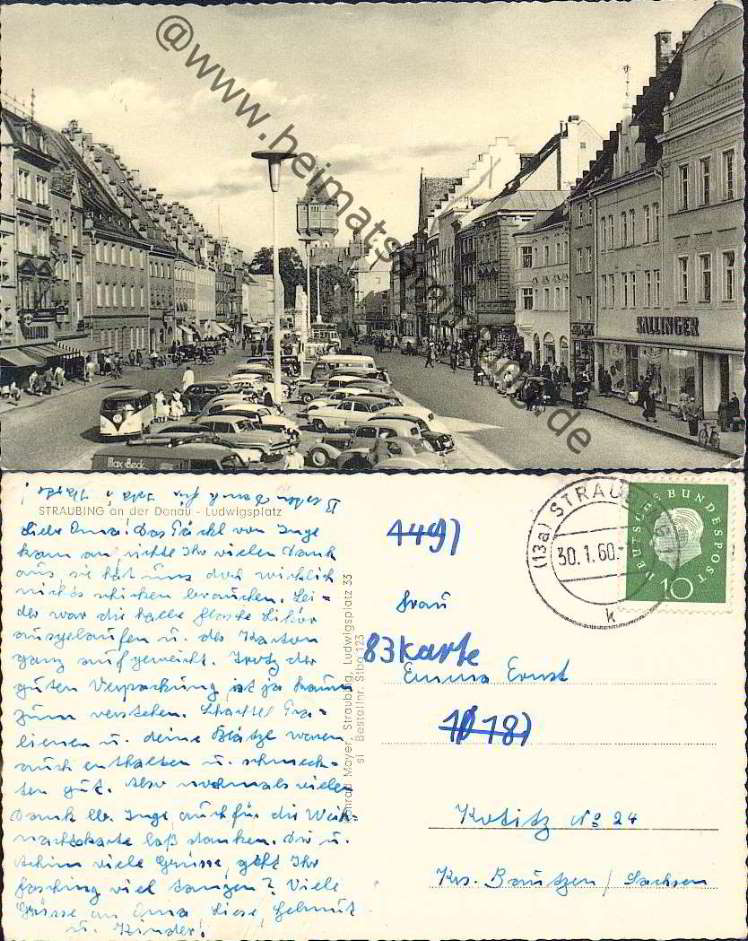 @www.heimatsammlung.de
SALLINGER
Max Beck
STRAUBING an der Donau - Ludwigsplatz
Liebe Oma! Das Päckl von Inge
kam an richte Ihr vielen Dank
aus, sie hät uns doch wirklich
nichts schicken brauchen. Lei-
der war die halbe Flasche Likör
ausgelaufen u. der Karton
ganz aufgeweicht. Trotz der
guten Verpackung ist ja kaum
zum verstehen. Schachtel Pra-
lienen u. deine Plätze waren
auch enthalten u. schmeck-
ten gut. Also nochmals vielen
Dank lb. Inge, auch für die Weih-
nachtskarte laß danken. Dir u.
Achim viele Grüsse, geht Ihr
Fasching viel tanzen? Viele
Grüsse an Oma Liese, Helmut
u. Kinder!
Konrad Mayer, Straubing, Ludwigsplatz 35
si Bestellnr. Stbg 123
(13a) STRAUBING
30.1.60.
k
DEUTSCHE BUNDESPOST
10
1449)
Frau
83 Karte
Emma Ernst
187)
Kotitz No 24
Krs. Bautzen / Sachsen